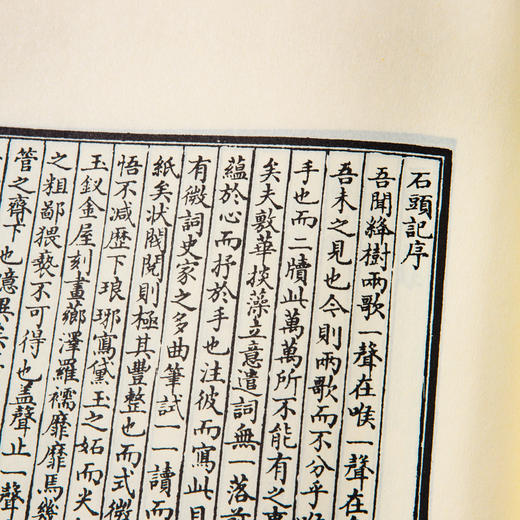 石頭記序
吾聞絳樹兩歌一聲在喉一聲在
吾未之見也今則兩歌而不分乎喉
手也而二牘此萬萬所不能有之事
矣夫敷華掞藻立意遣詞無一落前
蘊於心而抒於手也注彼而寫此
有微詞史家之多曲筆試一一讀而
紙矣狀閥閱則極其豐整也而式微
悟不减歷下琅琊寫黛玉之妬而尖
玉釵金屋刻畫薌澤羅襦靡靡焉幾
之粗鄙猥褻不可得也盖聲止一聲
管之齊下也噫異矣